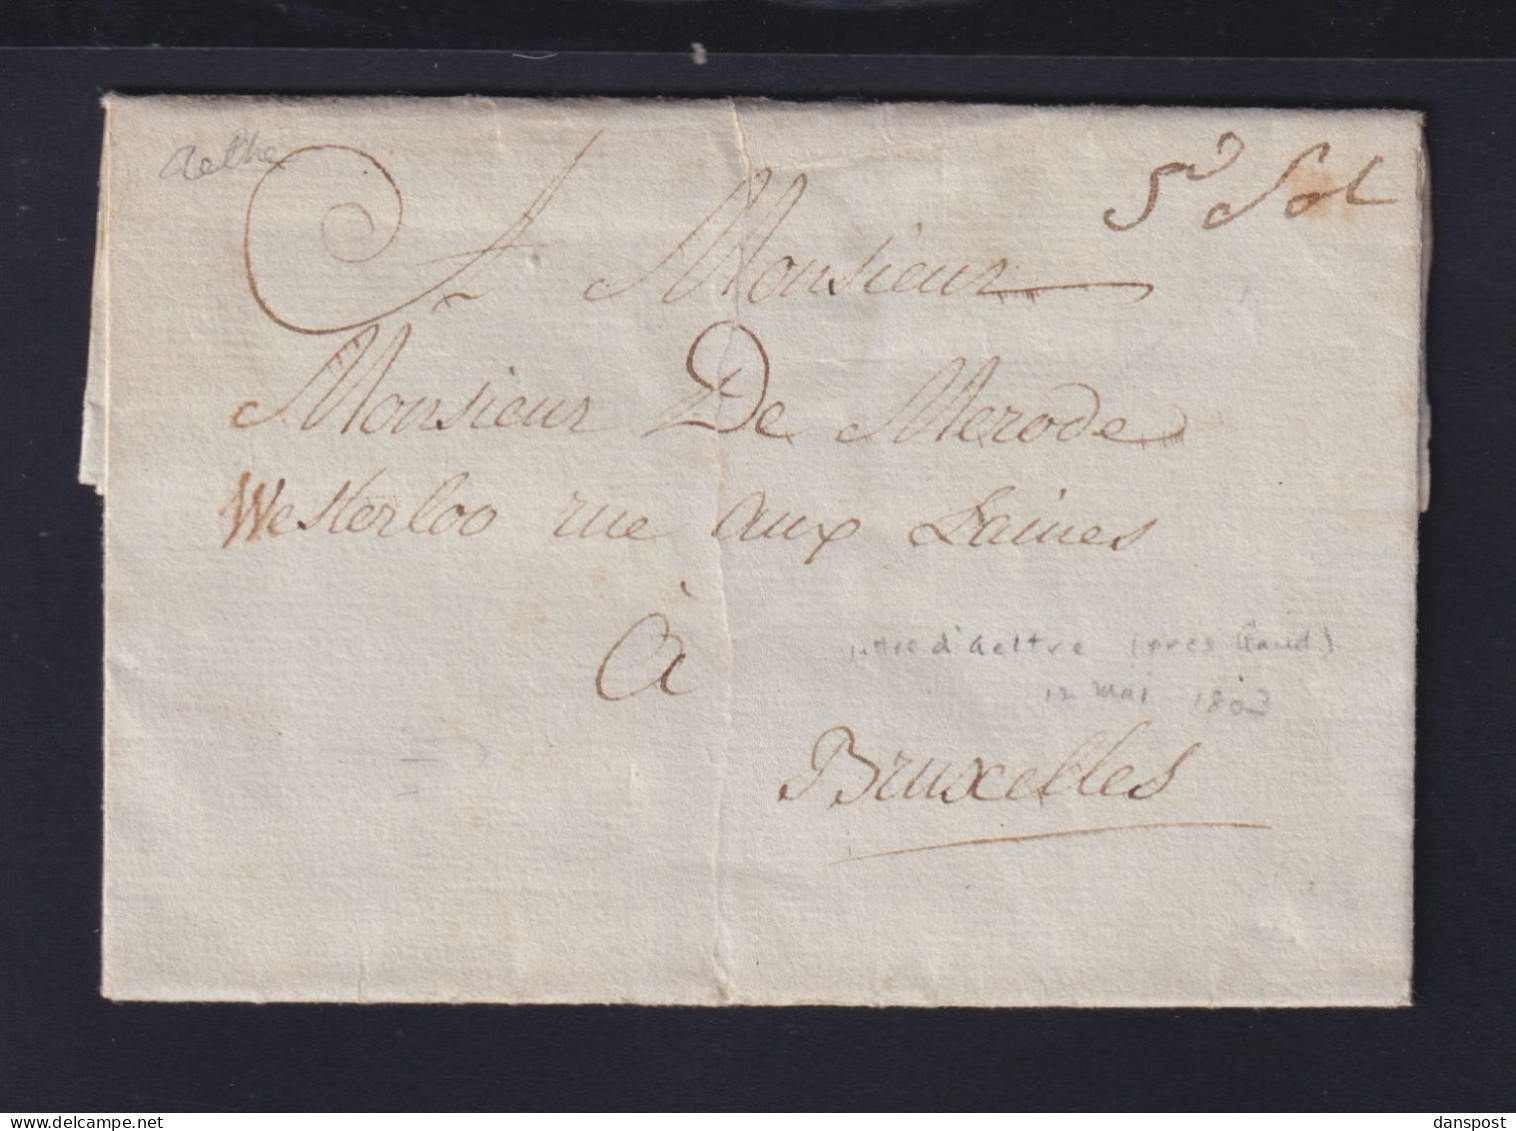 5 Sol
A Monsieur
Monsieur De Merode
Westerloo rue aux Laines
d'Aeltre (près Gand)
12 mai 1803
À
Bruxelles
danspost